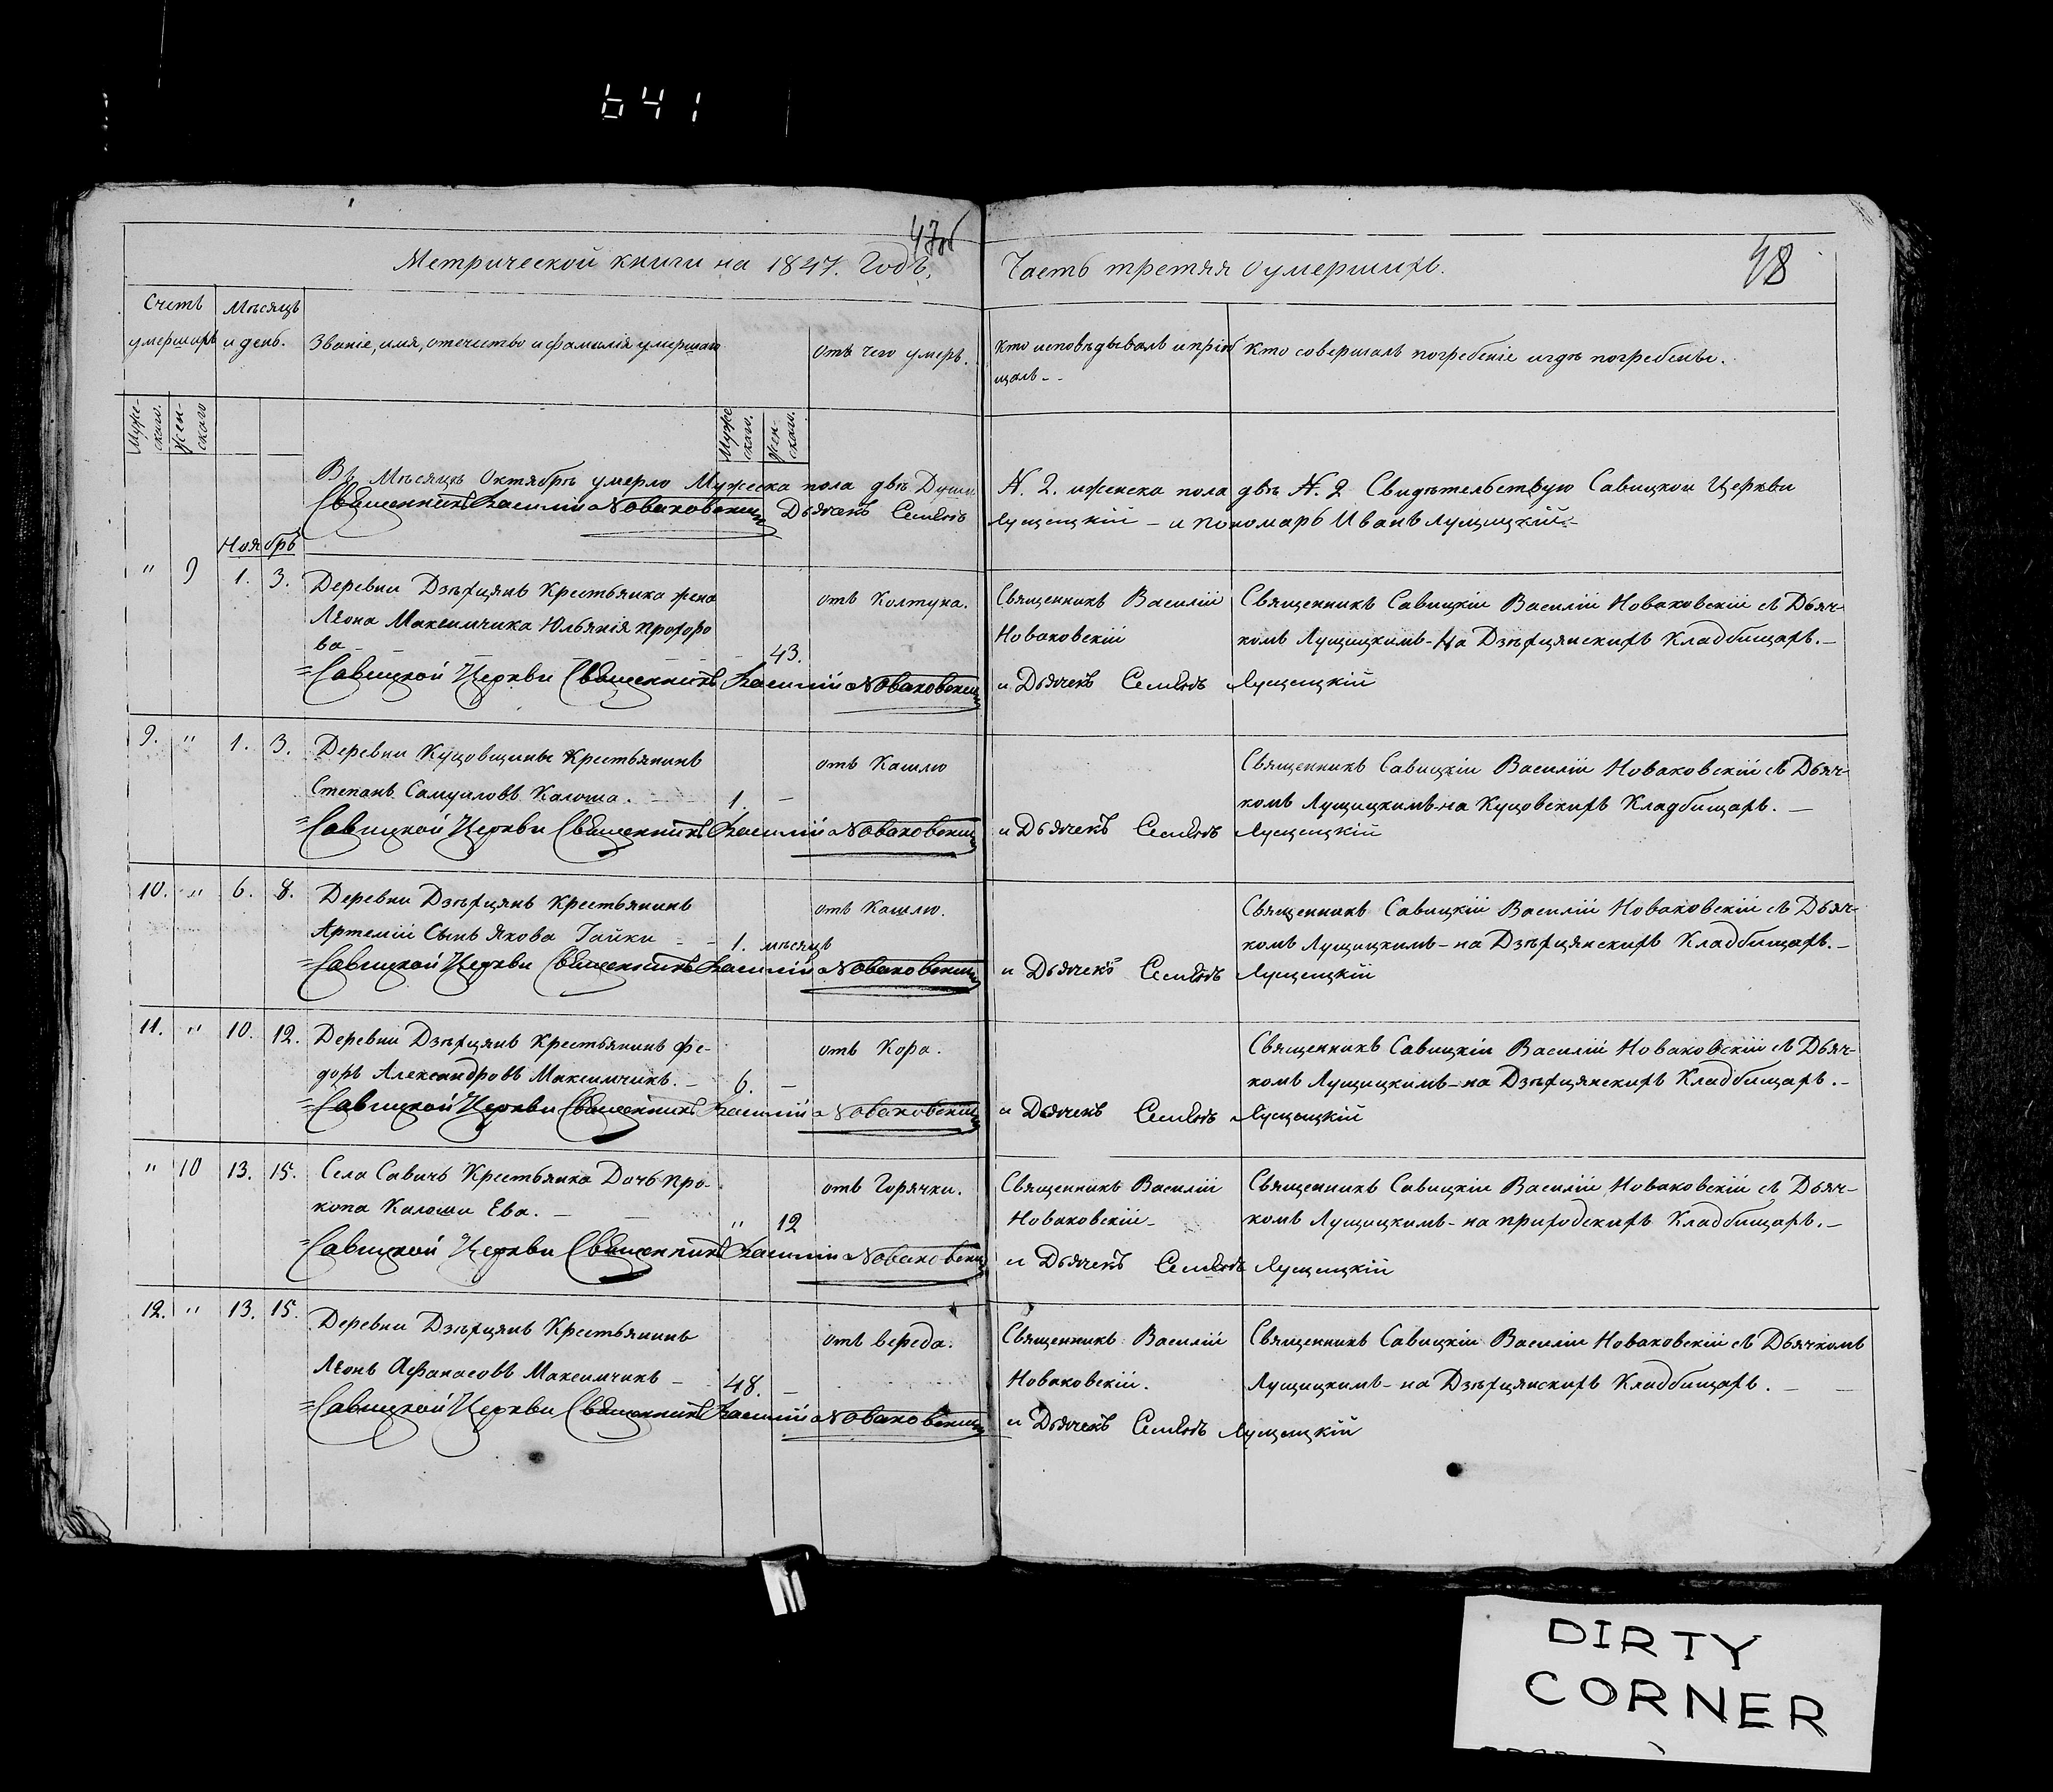 641
47об
48
Метрической книги на 1847. Годъ,
Часть третяя о умершихъ.
Счетъ умершихъ
Мѣсяцъ и день.
Званіе, имя, отечество и фамилія умершаго
отъ чего умеръ.
Кто исповѣдывалъ и пріоб
щалъ--
Кто совершалъ погребеніе и гдѣ погребены.
Муже-
скаго.
Жен-
скаго
Муже
скаго.
Жен-
скаго.
Въ Мѣсяцѣ Октябрѣ умерло Мужеска пола двѣ Души N. 2. и женска пола двѣ N. 2 Свидѣтельствую Савицкой Церкви
Священникъ Василій Новаковскій Дьячекъ Семіонъ Лущицкій - и пономарь Иванъ Лущицкій -
Ноябрь
" 9 1. 3. Деревни Дзѣхцянъ Крестьянка жена
Леона Максимчика Юльянія Прохоро
ва - 43. отъ Колтуна.
Священникъ Василій
Новаковскій
Священникъ Савицкій Василій Новаковскій съ Дьяч-
комъ Лущицкимъ - На Дзѣхцянскихъ Кладбищахъ. -
= Савицкой Церкви Священникъ Василій Новаковскій и Дьячекъ Семіонъ Лущицкій
9. " 1. 3. Деревни Куцовщины Крестьянинъ
Степанъ Самуиловъ Калоша. - 1. - отъ Кашлю
Священникъ Савицкій Василій Новаковскій съ Дьяч-
комъ Лущицкимъ - на Куцовскихъ Кладбищахъ. -
= Савицкой Церкви Священникъ Василій Новаковскій и Дьячекъ Семіонъ Лущицкій
10. " 6. 8. Деревни Дзѣхцянъ Крестьянинъ
Артемій Сынъ Якова Гайки - - 1. мѣсяцъ отъ Кашлю.
Священникъ Савицкій Василій Новаковскій съ Дьяч-
комъ Лущицкимъ - на Дзѣхцянскихъ Кладбищахъ. -
= Савицкой Церкви Священникъ Василій Новаковскій и Дьячекъ Семіонъ Лущицкій
11. " 10. 12. Деревни Дзѣхцянъ Крестьянинъ Фе-
доръ Александровъ Максимчикъ. - 6. - отъ Кора.
Священникъ Савицкій Василій Новаковскій съ Дьяч-
комъ Лущицкимъ - на Дзѣхцянскихъ Кладбищахъ. -
= Савицкой Церкви Священникъ Василій Новаковскій и Дьячекъ Семіонъ Лущицкій
" 10 13. 15. Села Савичъ Крестьянка Дочь Про-
копа Калоши Ева. - " 12 отъ Горячки.
Священникъ Василій
Новаковскій -
Священникъ Савицкій Василій Новаковскій съ Дьяч-
комъ Лущицкимъ - на приходскихъ Кладбищахъ. -
= Савицкой Церкви Священникъ Василій Новаковскій и Дьячекъ Семіонъ Лущицкій
12. " 13. 15. Деревни Дзѣхцянъ Крестьянинъ
Леонъ Афанасовъ Максимчикъ - 48. - отъ вереда.
Священникъ Василій
Новаковскій.
Священникъ Савицкій Василій Новаковскій съ Дьячкомъ
Лущицкимъ - на Дзѣхцянскихъ Кладбищахъ. -
= Савицкой Церкви Священникъ Василій Новаковскій и Дьячекъ Семіонъ Лущицкій
DIRTY
CORNER